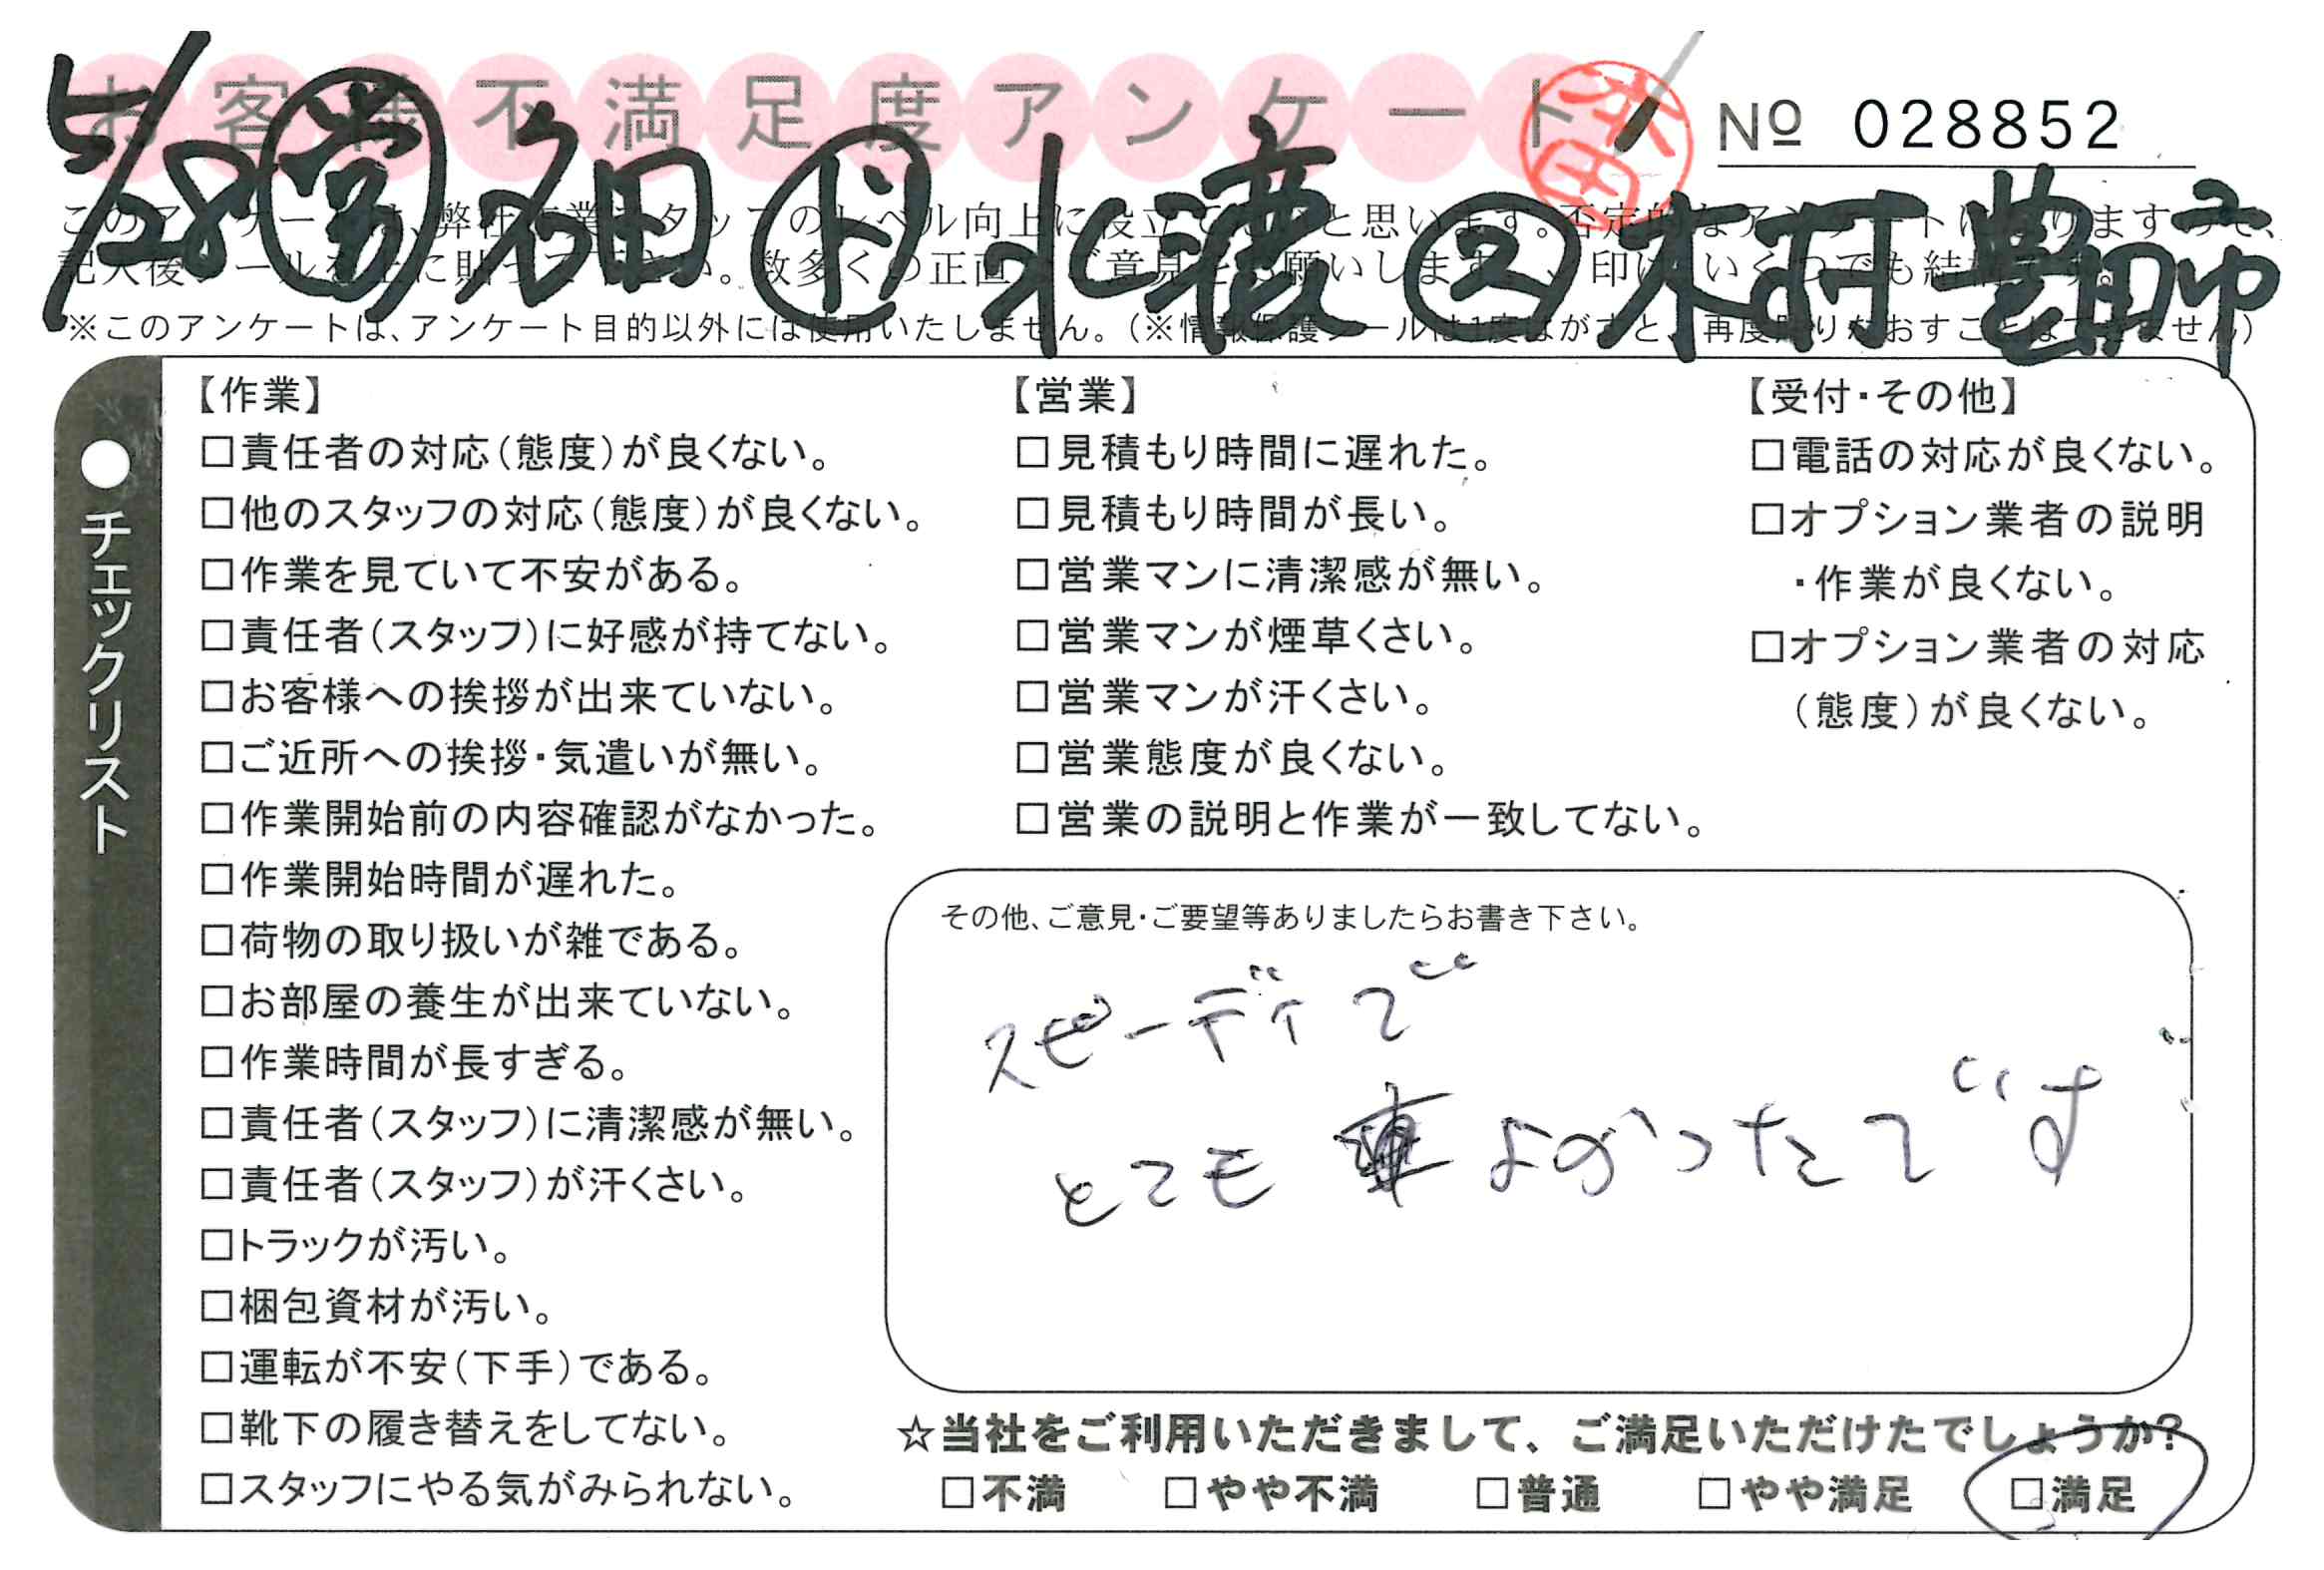 お客様不満足度アンケート
№ 028852
5/28 営 石田 ド 水漉 ス 木村 豊田市
※このアンケートは、アンケート目的以外には使用いたしません。(※情報保護シールは1度はがすと、再度貼りなおすことはできません)
●チェックリスト
【作業】
□責任者の対応(態度)が良くない。
□他のスタッフの対応(態度)が良くない。
□作業を見ていて不安がある。
□責任者(スタッフ)に好感が持てない。
□お客様への挨拶が出来ていない。
□ご近所への挨拶・気遣いが無い。
□作業開始前の内容確認がなかった。
□作業開始時間が遅れた。
□荷物の取り扱いが雑である。
□お部屋の養生が出来ていない。
□作業時間が長すぎる。
□責任者(スタッフ)に清潔感が無い。
□責任者(スタッフ)が汗くさい。
□トラックが汚い。
□梱包資材が汚い。
□運転が不安(下手)である。
□靴下の履き替えをしてない。
□スタッフにやる気がみられない。
【営業】
□見積もり時間に遅れた。
□見積もり時間が長い。
□営業マンに清潔感が無い。
□営業マンが煙草くさい。
□営業マンが汗くさい。
□営業態度が良くない。
□営業の説明と作業が一致してない。
【受付・その他】
□電話の対応が良くない。
□オプション業者の説明
・作業が良くない。
□オプション業者の対応
(態度)が良くない。
その他、ご意見・ご要望等ありましたらお書き下さい。
スピーディで
とても よかったです
☆当社をご利用いただきまして、ご満足いただけたでしょうか?
□不満 □やや不満 □普通 □やや満足 □満足